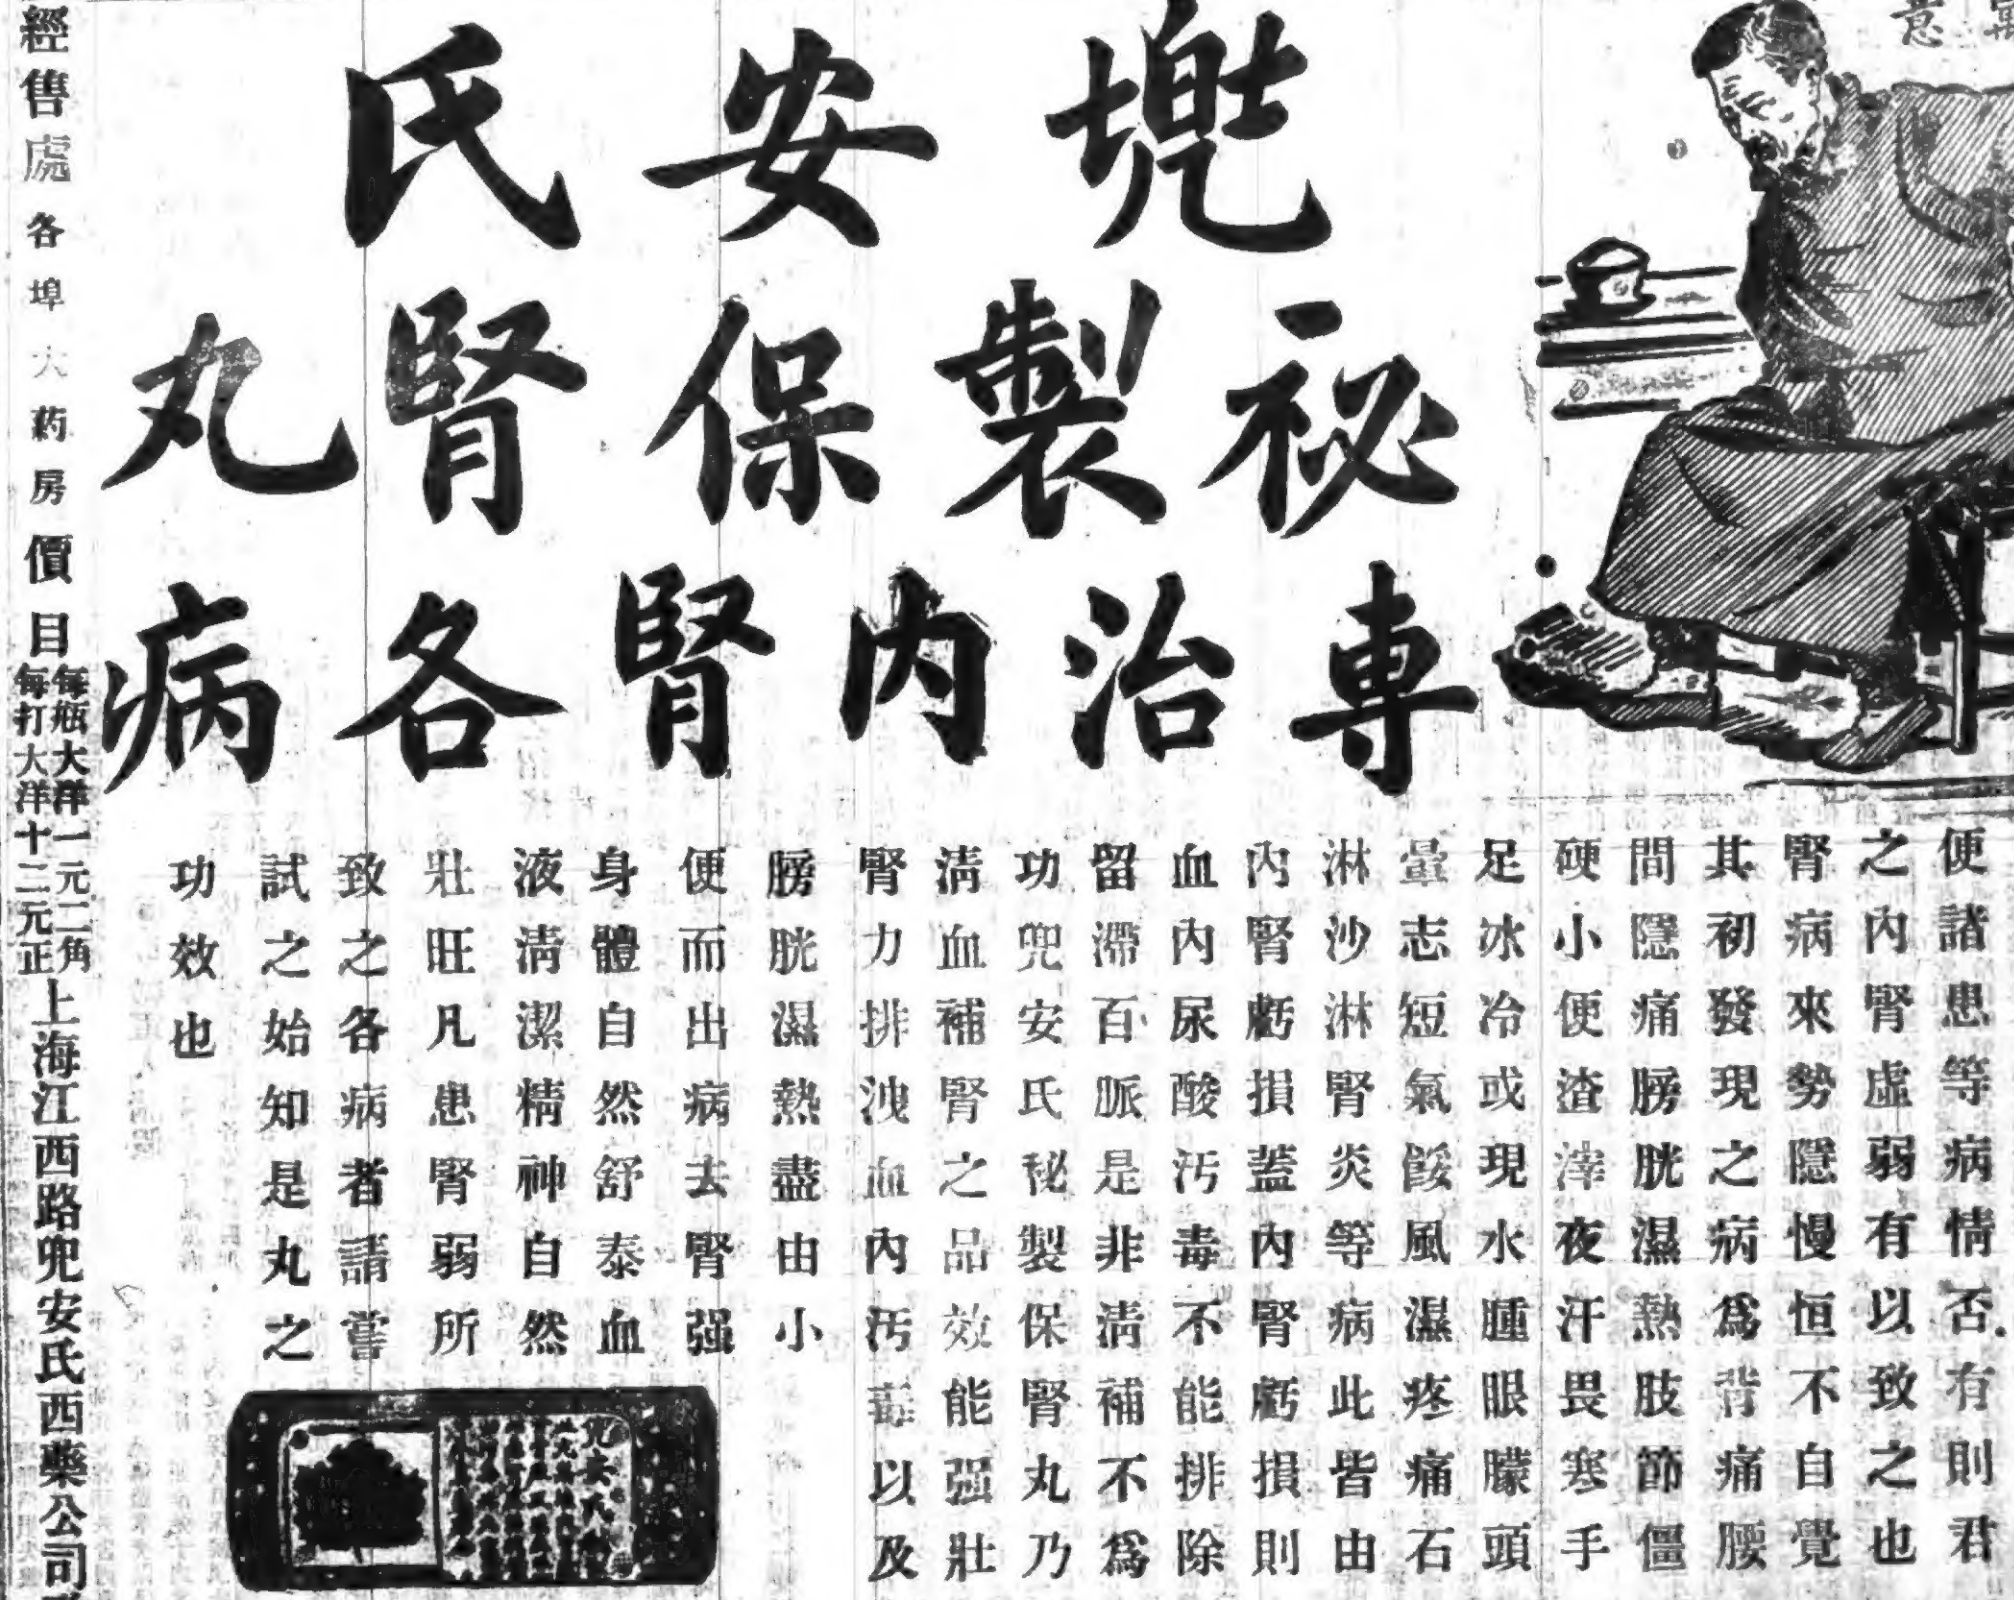 意
兜安氏
祕製保腎丸
專治內腎各病
便諸患等病情否有則君
之內腎虛弱有以致之也
腎病來勢隱慢恒不自覺
其初發現之病爲背痛腰
間隱痛膀胱濕熱肢節僵
硬小便渣滓夜汗畏寒手
足冰冷或現水腫眼朦頭
暈志短氣餒風濕疼痛石
淋沙淋腎炎等病此皆由
內腎虧損蓋內腎虧損則
血內尿酸污毒不能排除
留滯百脈是非清補不爲
功兜安氏秘製保腎丸乃
清血補腎之品效能强壯
腎力排洩血內污毒以及
膀胱濕熱盡由小
便而出病去腎强
身體自然舒泰血
液清潔精神自然
壯旺凡患腎弱所
致之各病者請嘗
試之始知是丸之
功效也
經售處各埠大葯房價目
每瓶大洋一元二角
每打大洋十二元正
上海江西路兜安氏西藥公司